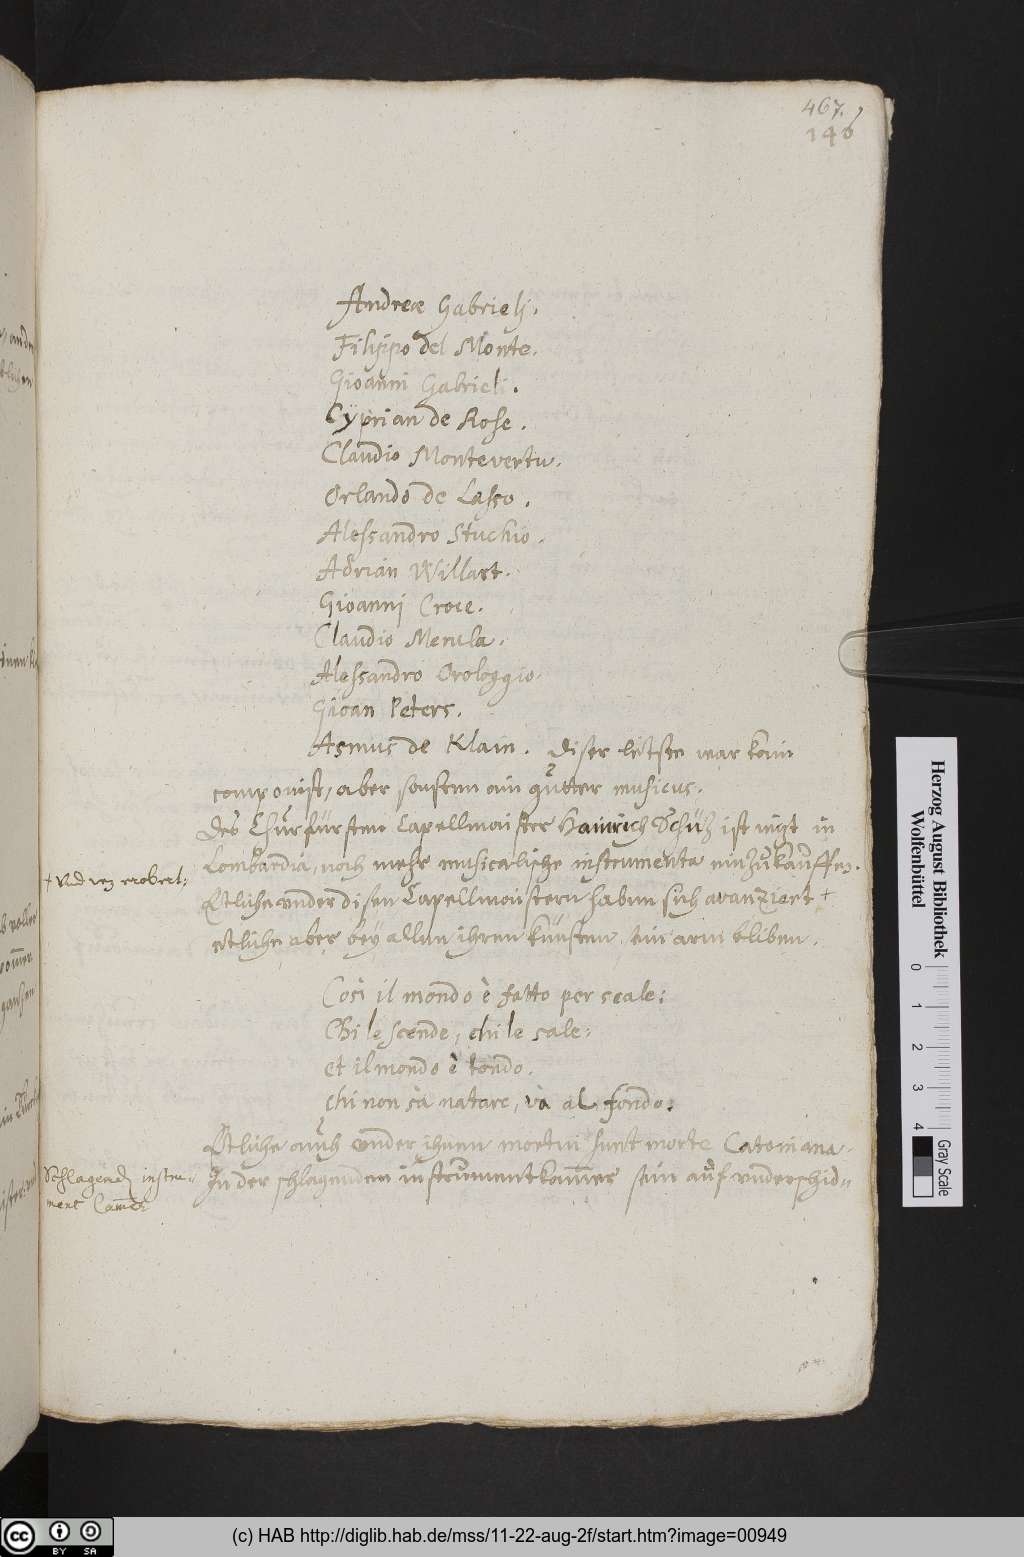 467.
140
Andreæ Gabrielj.
Filippo del Monte.
Gioanni Gabrieli.
Cÿprian de Rose.
Claudio Montevertu.
Orlando de Lasso.
Alessandro Stuchio.
Adrian Willart.
Gioannj Croce.
Claudio Merula.
Alessandro Orologgio.
Gioan Peters.
Asmus de Klain. diser letste war kain
componist, aber sonsten ain gutter musicus.
Des Churfürsten Capellmaister Hainrich Schüz ist iezt in
Lombardia, noch mehr musicalische instrumenta einzukauffen.
Etliche under disen Capellmaistern haben sich avanziert +
etliche aber beÿ allen ihren künsten arm bliben.
Così il mondo è fatto per scale:
Chi le scende, chi le sale:
et il mondo è tondo.
chi non sà natare, và al fondo:
Etliche auch under ihnen mortui sunt morte Catoniana.
In der schlagenden instrument kamer sein auf underschid=
Schlagend instru=
ment Camer
Herzog August Bibliothek
Wolfenbüttel
0 1 2 3 4
Gray Scale
cc BY SA
(c) HAB http://diglib.hab.de/mss/11-22-aug-2f/start.htm?image=00949